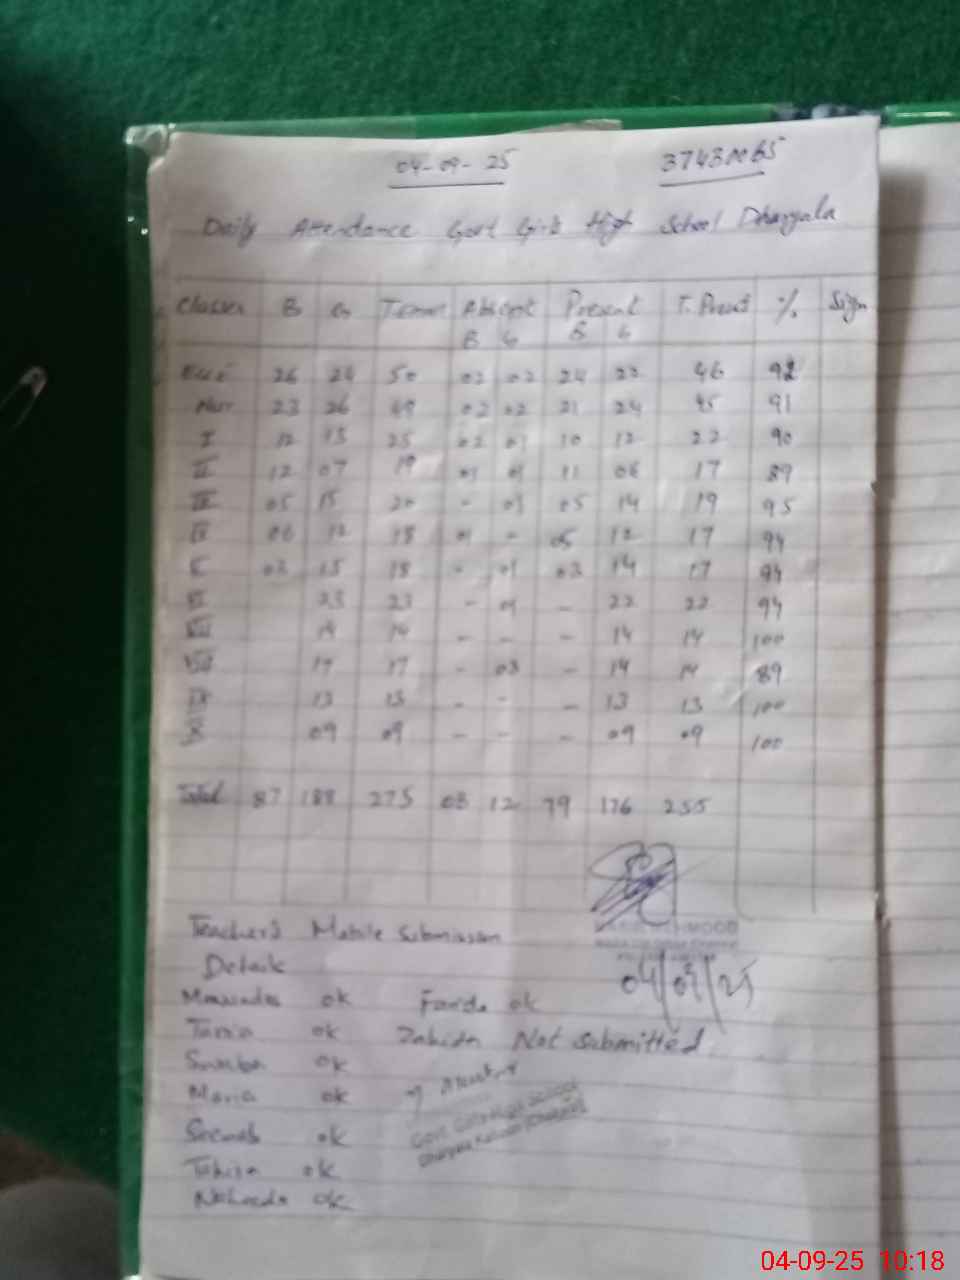 04-09-25 37430065
Daily Attendance Govt Girls High School Dharyala
Classes B G T. Absent Present T. Present % Sign
B G B G
ECCE 26 24 50 02 02 24 22 46 92
Nur 23 26 49 02 02 21 24 45 91
I 12 13 25 02 01 10 12 22 90
II 12 07 19 01 01 11 06 17 89
III 05 15 20 - 01 05 14 19 95
IV 06 12 18 01 - 05 12 17 94
V 03 15 18 - 01 03 14 17 94
VI 23 23 - 01 - 22 22 94
VII 14 14 - - - 14 14 100
VIII 17 17 - 03 - 14 14 89
IX 13 13 - - - 13 13 100
X 09 09 - - - 09 09 100
Total 87 188 275 08 12 79 176 255
Teacher's Mobile Submission
Details
04/09/25
ok Farida ok
Tania ok Zahida Not Submitted
ok
Maria ok
ok
Govt. Girls High School
Tahira ok
ok
04-09-25 10:18